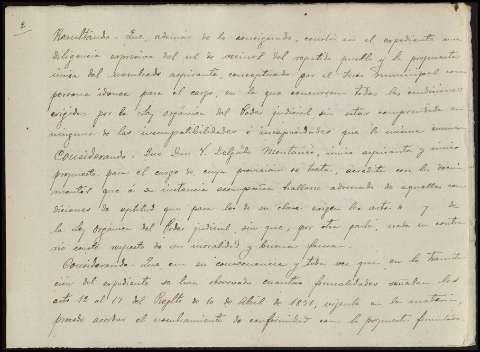 2
Resultando - Que, además de lo consignado, consta en el expediente una
diligencia expresiva del nº de vecinos del repetido pueblo y la propuesta
única del mencionado aspirante, conceptuado por el Juez Municipal como
persona idónea para el cargo, en la que concurren todas las condiciones
exigidas por la Ley orgánica del Poder judicial sin estar comprendida en
ninguna de las incompatibilidades é incapacidades que la misma enumera
Considerando - Que Don Delgado Montaño, único aspirante y único
propuesto para el cargo de cuya provision se trata, acredita con la docu-
mental que á su instancia acompaña hallarse adornado de aquellas con-
diciones de aptitud que para los de su clase exigen los arts. y de
la Ley orgánica del Poder judicial, sin que, por otra parte, nada en contra-
rio conste respecto de su moralidad y buena fama.
Considerando - Que en su consecuencia y toda vez que en la tramita-
ción del expediente se han observado cuantas formalidades señalan los
arts 12 al 17 del Reglto de 10 de Abril de 1871, vigente en la materia,
procede acordar el nombramiento de conformidad con la propuesta formulada